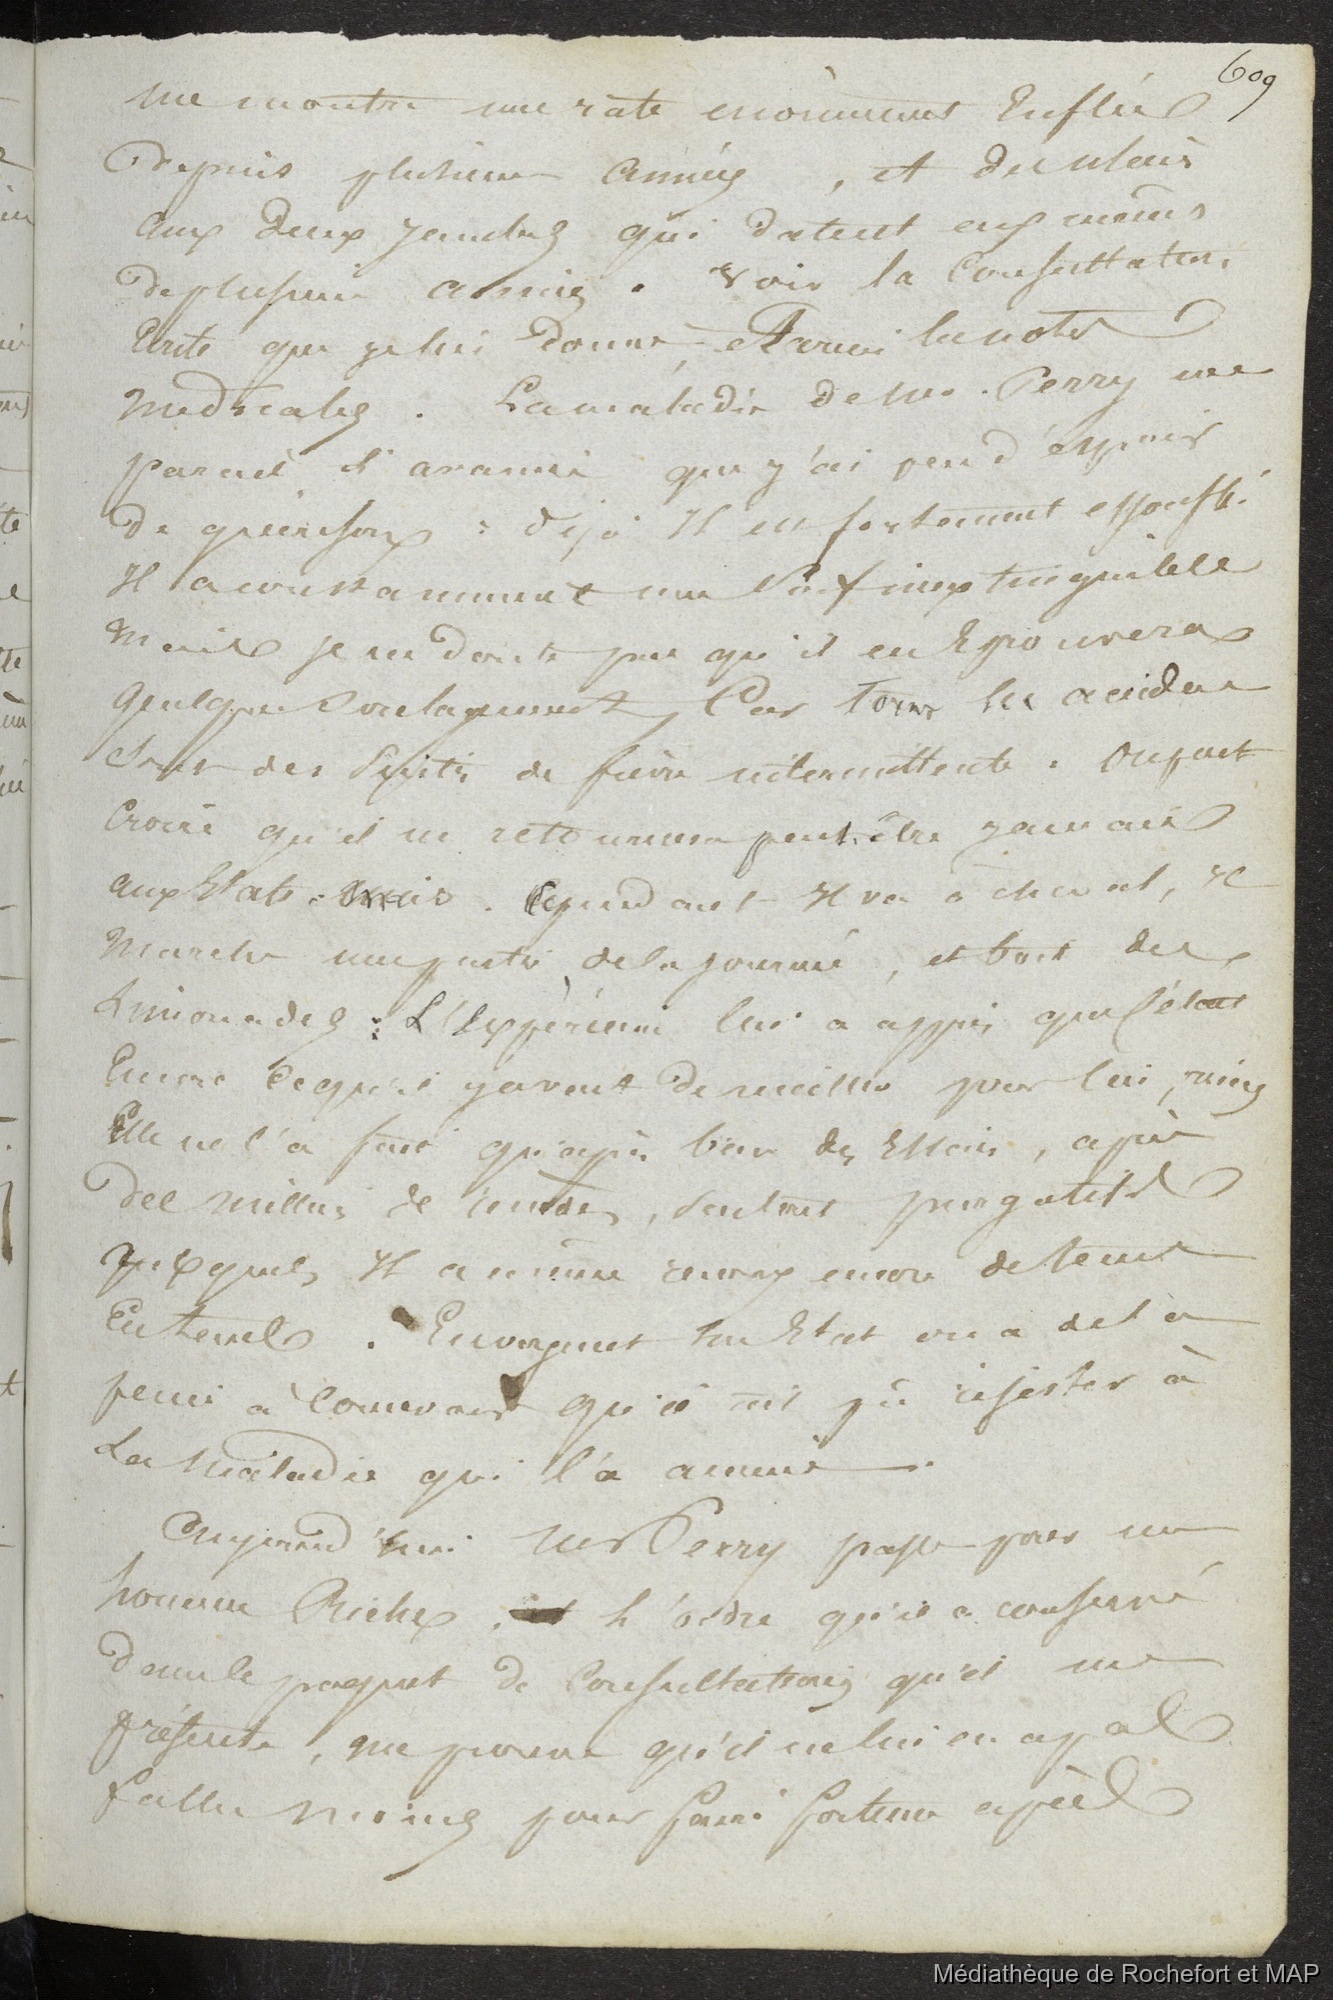 609
me montre une rate enormement Enflée
depuis plusieurs années, et des plaies
aux deux jambes qui datent eux mêmes
de plusieurs années. Voir la Consultation
Ecrite que je lui donne, et parmi les notes
Medicales. La maladie de Mr. Perry me
parait si avancée que j'ai peu d'espoir
de guérison : déjà Il est fortement essoufflé
Il a constamment une soif inextinguible
Mais je ne doute pas qu'il en Eprouvera
quelque soulagement, Car tous les accidens
sont des suites de fièvre intermittente. On peut
Croire qu'il ne retournera peut être jamais
aux Etats-Unis. Cependant Il va à cheval, Il
Marche une partie de la journée, et boit des
Limonades : L'Expérience lui a appris que c'étoit
Encore ce qu'il y avoit de meilleur pour lui, mais
Elle ne l'a fait qu'après bien des Essais, après
des milliers de remèdes, surtout purgatifs
auxquels Il a même recours encore de tems
En tems. En voyant son Etat on a de la
peine à concevoir qu'il ait pû résister à
La Maladie qui l'a amené.
Aujourd'hui Mr Perry passe pour un
homme Riche. L'ordre qu'il a conservé
dans le paquet de Consultations qu'il me
présente, me prouve qu'il ne lui en a pas
fallu moins pour faire fortune après
Médiathèque de Rochefort et MAP